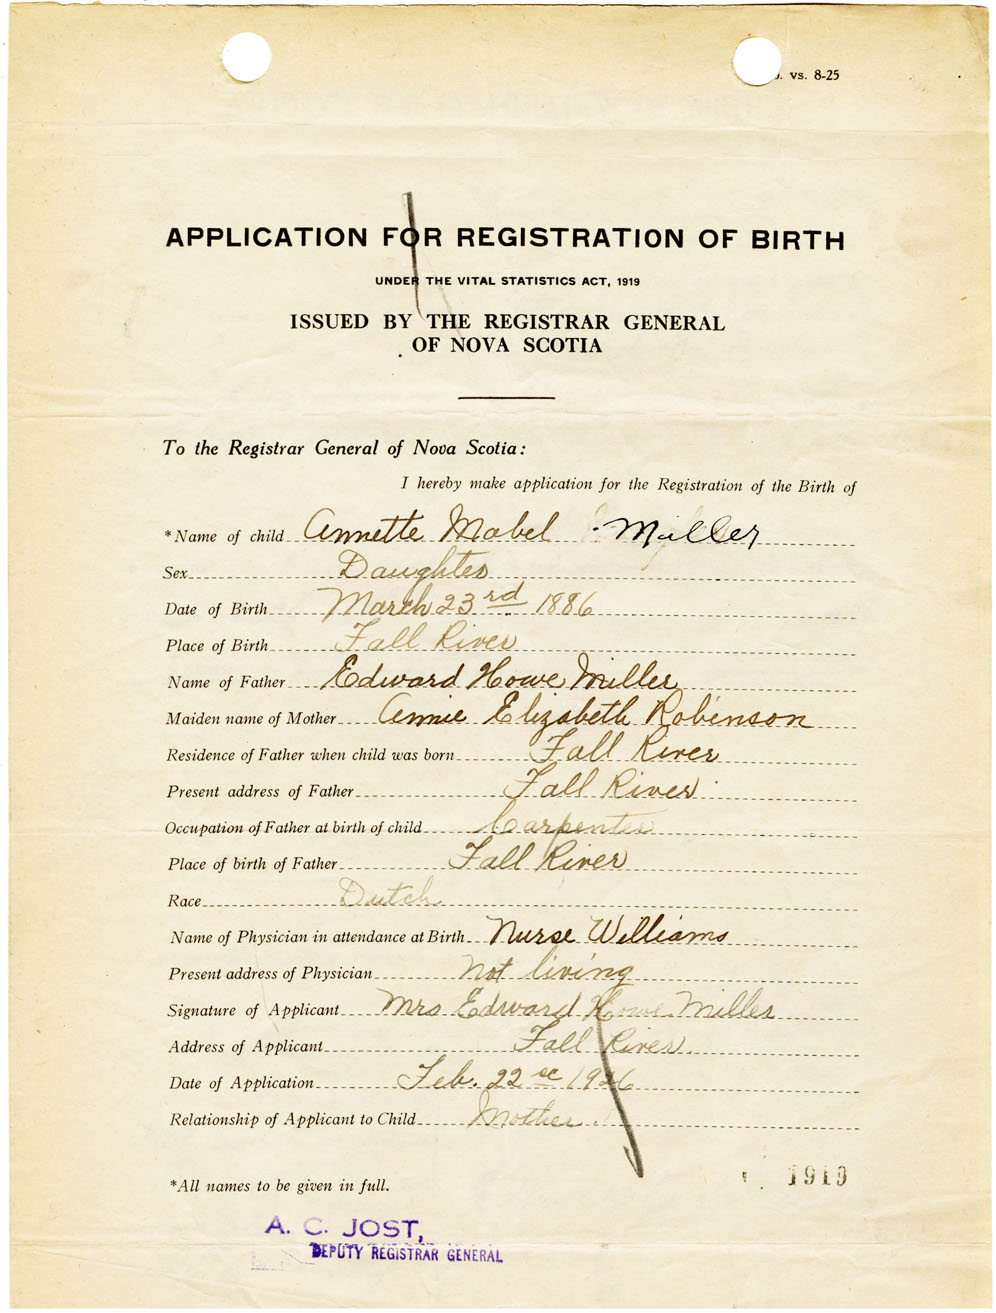 vs. 8-25
APPLICATION FOR REGISTRATION OF BIRTH
UNDER THE VITAL STATISTICS ACT, 1919
ISSUED BY THE REGISTRAR GENERAL
OF NOVA SCOTIA
To the Registrar General of Nova Scotia:
I hereby make application for the Registration of the Birth of
*Name of child Annette Mabel Miller
Sex Daughter
Date of Birth March 23rd 1886
Place of Birth Fall River
Name of Father Edward Howe Miller
Maiden name of Mother Annie Elizabeth Robinson
Residence of Father when child was born Fall River
Present address of Father Fall River
Occupation of Father at birth of child Carpenter
Place of birth of Father Fall River
Race Dutch
Name of Physician in attendance at Birth Nurse Williams
Present address of Physician Not living
Signature of Applicant Mrs Edward Howe Miller
Address of Applicant Fall River
Date of Application Feb. 22 1926
Relationship of Applicant to Child Mother
1919
*All names to be given in full.
A. C. JOST,
DEPUTY REGISTRAR GENERAL